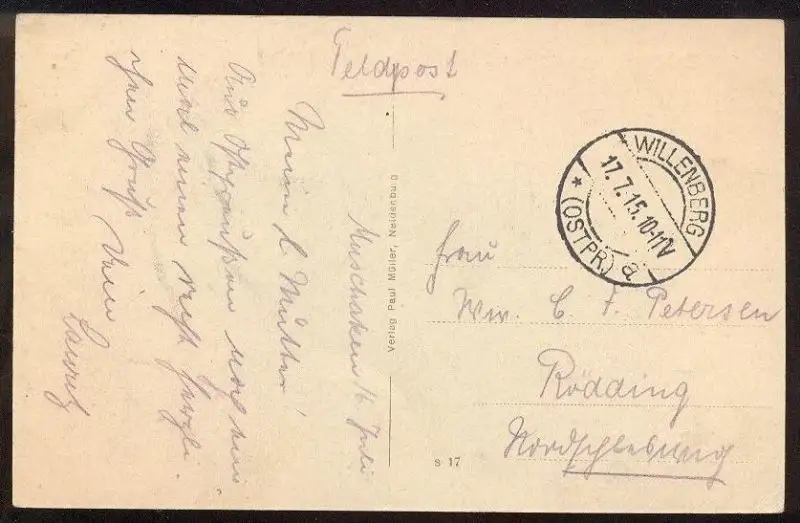 Feldpost
Muschaken 16. Juli
Mein l. Mutter!
Aus Ostpreußen noch ein
mal einen recht herzli-
chen Gruß Dein
Lauritz
Verlag Paul Müller, Neidenburg
S 17
WILLENBERG
17.7.15.10-11V
* (OSTPR.) a
Frau
Ww. C. F. Petersen
Rödding
Nordschleswig